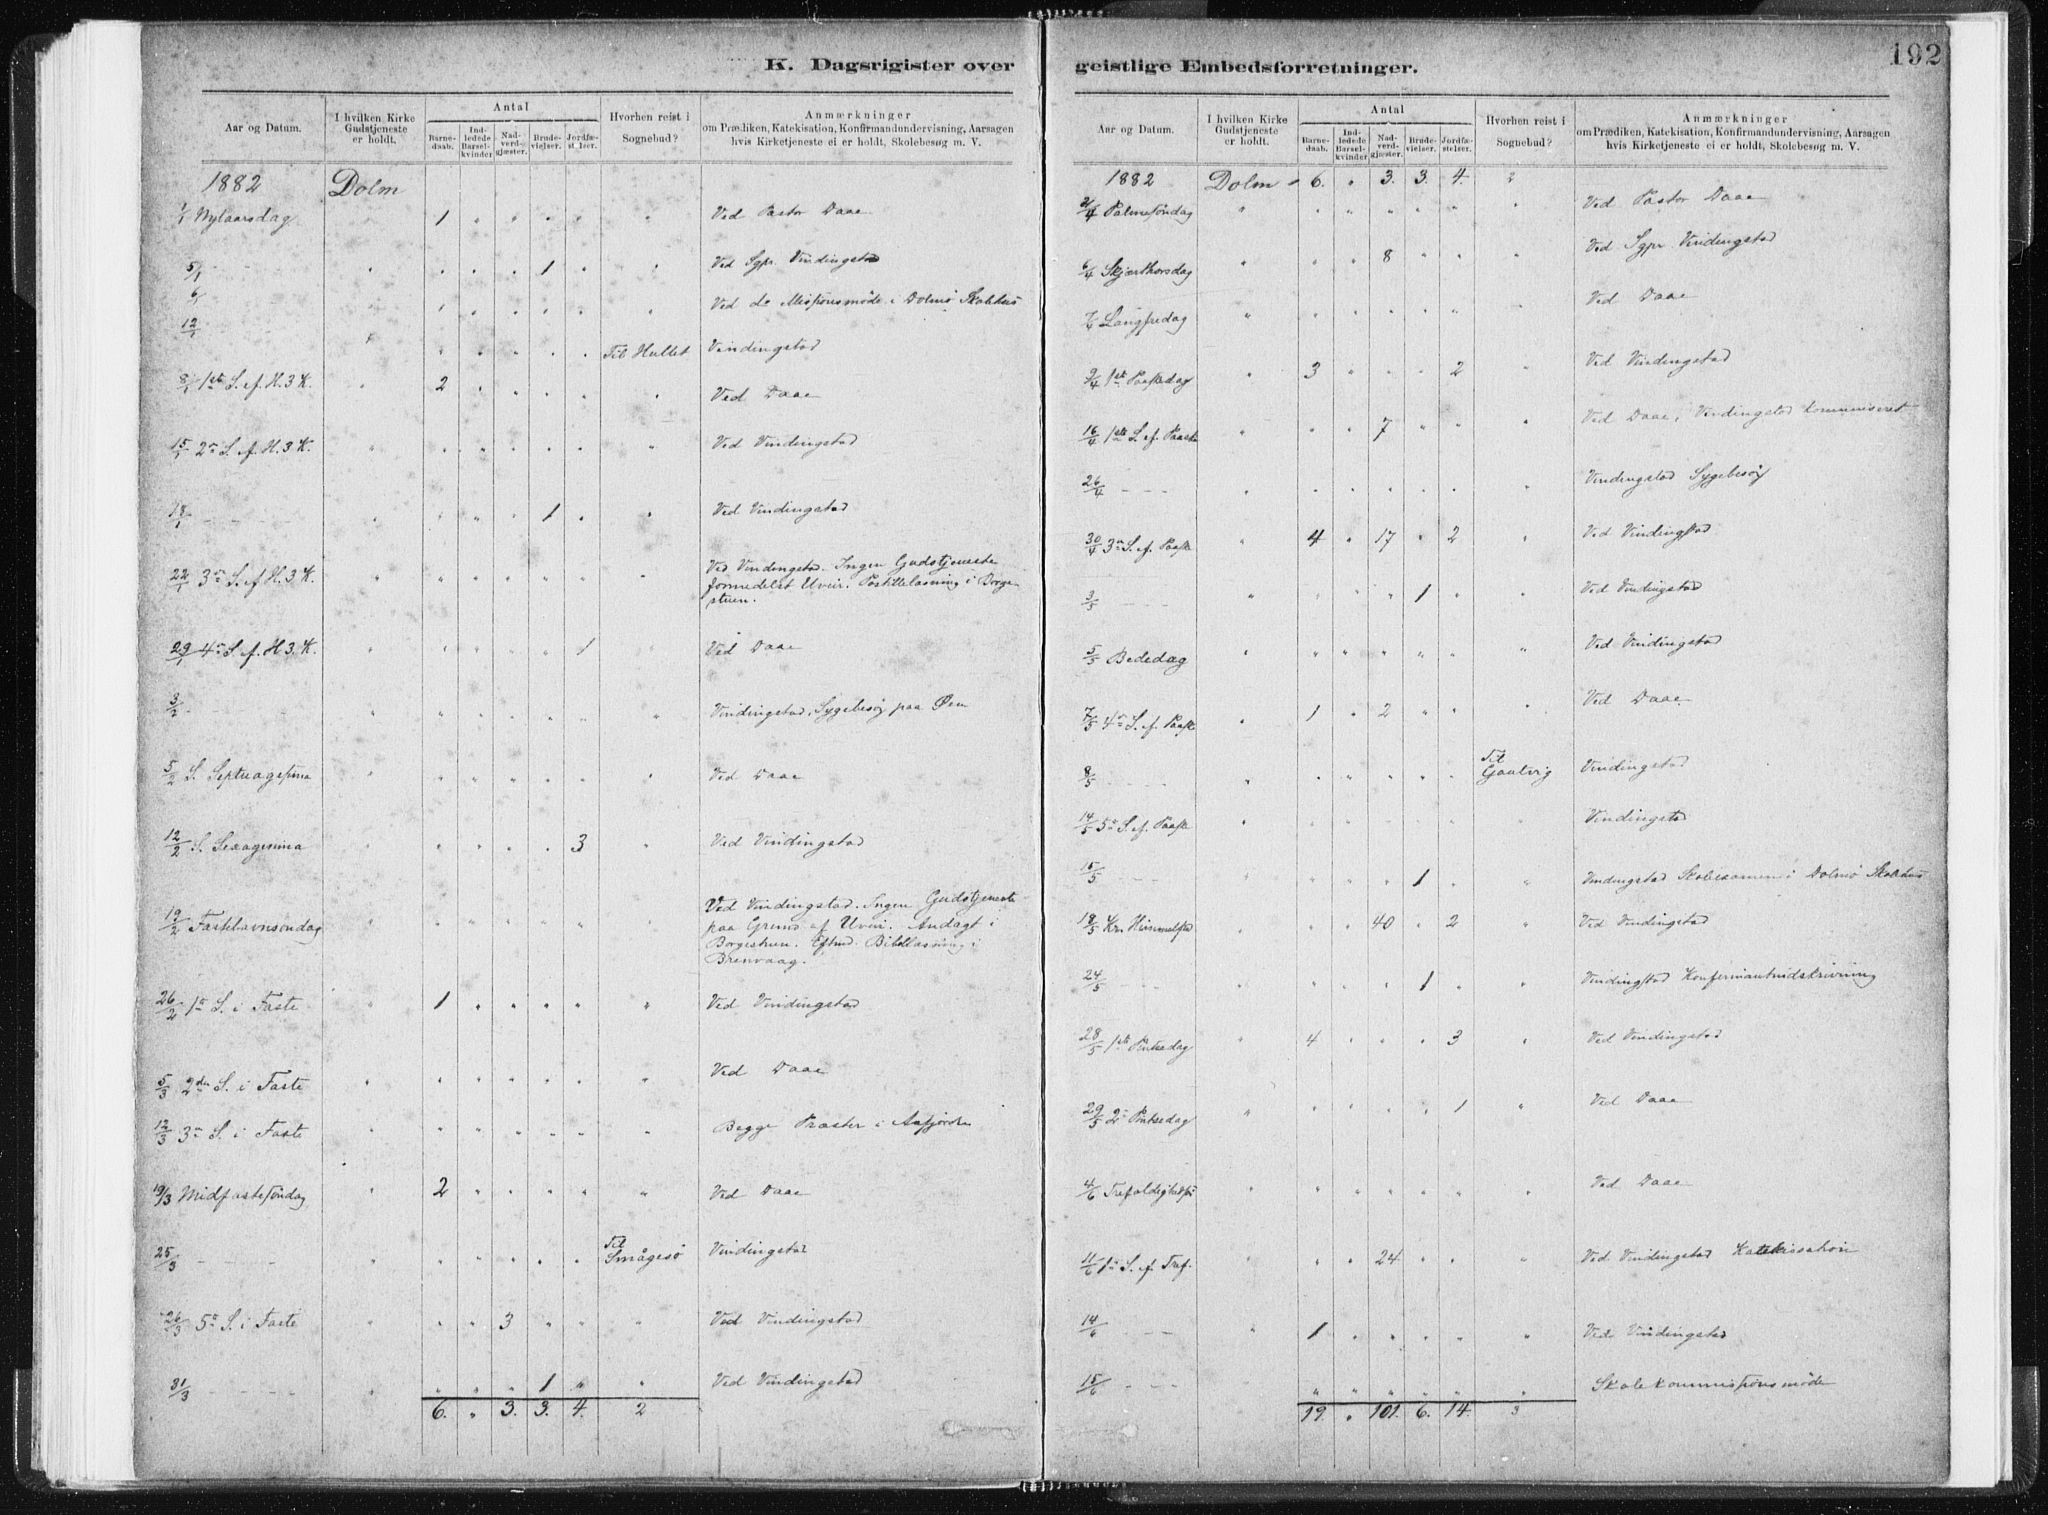 K. Dagsrigister over
Aar og Datum. | I hvilken Kirke Gudstjeneste er holdt. | Antal | Barnedaab. | Indledede Barselkvinder | Nadverdgjæster. | Brudevielser. | Jordfæstelser. | Hvorhen reist i Sognebud? | Anmærkninger om Prædiken, Katekisation, Konfirmandundervisning, Aarsagen hvis Kirketjeneste ei er holdt, Skolebesøg m. V.
1882 Dolm
1/1 Nytaarsdag 1 " " " " " Ved Pastor Daae
5/1 " " " " 1 " " Ved Sgpr. Vindingstad
6/1 " " " " " " Ved do Missionsmöde i Dolmö Skolehus
12/1 " " " " " " Til Hullet Vindingstad
8/1 1ste S. f. H. 3 K. " 2 " " " " " Ved Daae
15/1 2n S. f. H. 3 K. " " " " " " " Ved Vindingstad
18/1 - - - - " " " " 1 " " Ved Vindingstad
22/1 3n S. f. H. 3 K. " " " " " " " Ved Vindingstad. Ingen Gudstjeneste
formedelst Uveir. Postillelæsning i Borge-
stuen.
29/1 4n S. f. H. 3. K. " " " " " 1 " Ved Daae
3/2 - - - " " " " " " " Vindingstad, Sygebesög paa Øen
5/2 S. Septuagesima " " " " " " " Ved Daae
12/2 S. Sexagesima " " " " " 3 " Ved Vindingstad
19/2 Fastelavnsöndag " " " " " " " Ved Vindingstad. Ingen Gudstjeneste
paa Grund af Uveir. Andagt i
Borgestuen. Eftmd. Bibellæsning i
Brenvaag.
26/2 1n S. i Faste " 1 " " " " " Ved Vindingstad
5/3 2den S. i Faste " " " " " " " Ved Daae
12/3 3n S. i Faste " " " " " " " Begge Præster i Aafjorden
19/3 Midfastesöndag " 2 " " " " " Ved Daae
25/3 - - - - " " " " " " Til Smågesö Vindingstad
26/3 5n S. i Faste " " " 3 " " " Ved Vindingstad
31/3 - - - - " " " " 1 " " Ved Vindingstad
6. " 3. 3. 4. 2
geistlige Embedsforretninger.
192
Aar og Datum. | I hvilken Kirke Gudstjeneste er holdt. | Antal | Barnedaab. | Indledede Barselkvinder | Nadverdgjæster. | Brudevielser. | Jordfæstelser. | Hvorhen reist i Sognebud? | Anmærkninger om Prædiken, Katekisation, Konfirmandundervisning, Aarsagen hvis Kirketjeneste ei er holdt, Skolebesøg m. V.
1882 Dolm 6. " 3. 3. 4. 2
2/4 Palmesöndag " " " " " " " Ved Pastor Daae
6/4 Skjærthorsdag " " " 8 " " " Ved Sgpr Vindingstad
7/4 Langfredag " " " " " " " Ved Daae
9/4 1st Paaskedag " 3 " " " 2 " Ved Vindingstad
16/4 1ste S. ef. Paaske " " " 7 " " " Ved Daae, Vindingstad kommuniceret
26/4 - - - " " " " " " " Vindingstad Sygebesög
30/4 3n S. ef. Paaske " 4 " 17 " 2 " Ved Vindingstad
3/5 - - - " " " " 1 " " Ved Vindingstad
5/5 Bededag " " " " " " " Ved Vindingstad
7/5 4n S. ef. Paaske " 1 " 2 " " " Ved Daae
8/5 - - - - " " " " " " Til Gaatvig Vindingstad
14/5 5n S. ef. Paaske " " " " " " " Vindingstad
15/5 - - " " " " 1 " " Vindingstad Skoleexamen i Dolmö Skolehus
18/5 Kr. Himmelfad " " " 40 " 2 " Ved Vindingstad
24/5 - - - " " " " 1 " " Vindingstad Konfirmantindskrivning
28/5 1ste Pintsedag " 4 " " " 3 " Ved Vindingstad
29/5 2n Pintsedag " " " " " 1 " Ved Daae
4/6 Trefoldighedss. " " " " " " " Ved Daae
11/6 1n S. ef. Tref. " " " 24 " " " Ved Vindingstad Katekisation
14/6 - - - " 1 " " " " " Ved Vindingstad
15/6 - - - " " " " " " Skolekommissionsmöde
19. " 101. 6. 14. 3